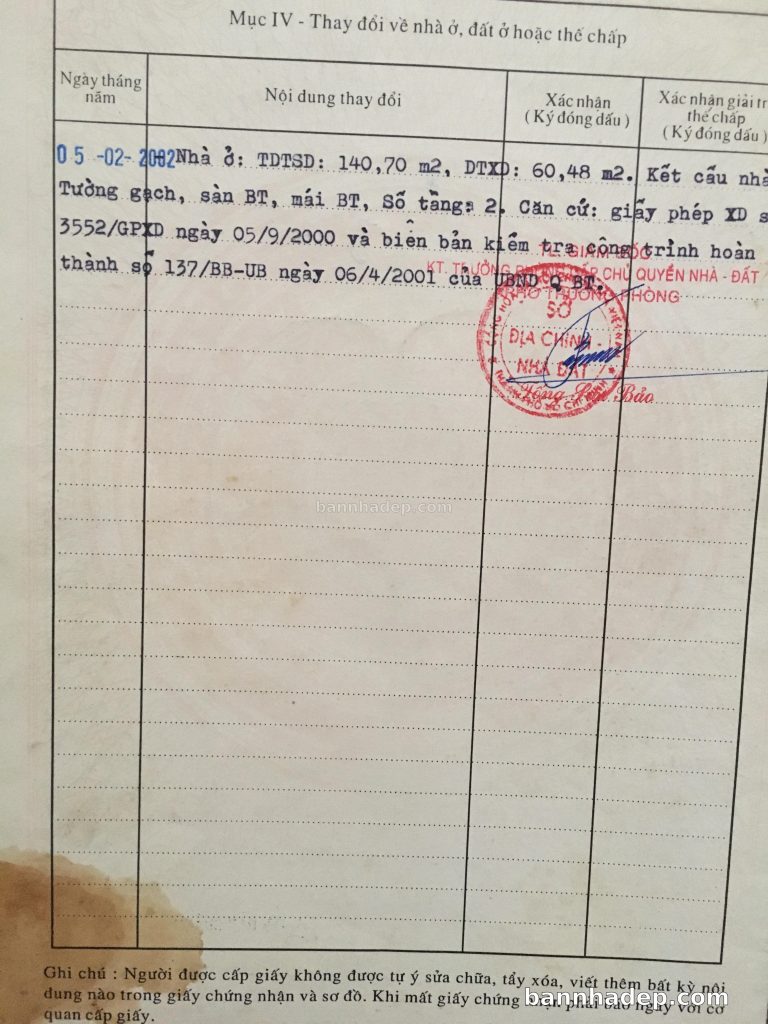 Mục IV - Thay đổi về nhà ở, đất ở hoặc thế chấp
Ngày tháng năm
Nội dung thay đổi
Xác nhận
(Ký đóng dấu)
Xác nhận giải tr
thế chấp
(Ký đóng dấu)
05-02-2002 Nhà ở: TDTSD: 140,70 m2, DTXD: 60,48 m2. Kết cấu nhà
Tường gạch, sàn BT, mái BT, Số tầng: 2. Căn cứ: giấy phép XD s
3552/GPXD ngày 05/9/2000 và biên bản kiểm tra công trình hoàn
thành số 137/BB-UB ngày 06/4/2001 của UBND Q BT.
TL. GIÁM ĐỐC
KT. TRƯỞNG PHÒNG CHỦ QUYỀN NHÀ - ĐẤT
PHÓ TRƯỞNG PHÒNG
SỞ
ĐỊA CHÍNH -
NHÀ ĐẤT
THÀNH PHỐ HỒ CHÍ MINH
Bảo
bannhadep.com
Ghi chú : Người được cấp giấy không được tự ý sửa chữa, tẩy xóa, viết thêm bất kỳ nội
dung nào trong giấy chứng nhận và sơ đồ. Khi mất giấy chứng nhận phải báo ngay với cơ
quan cấp giấy.
bannhadep.com